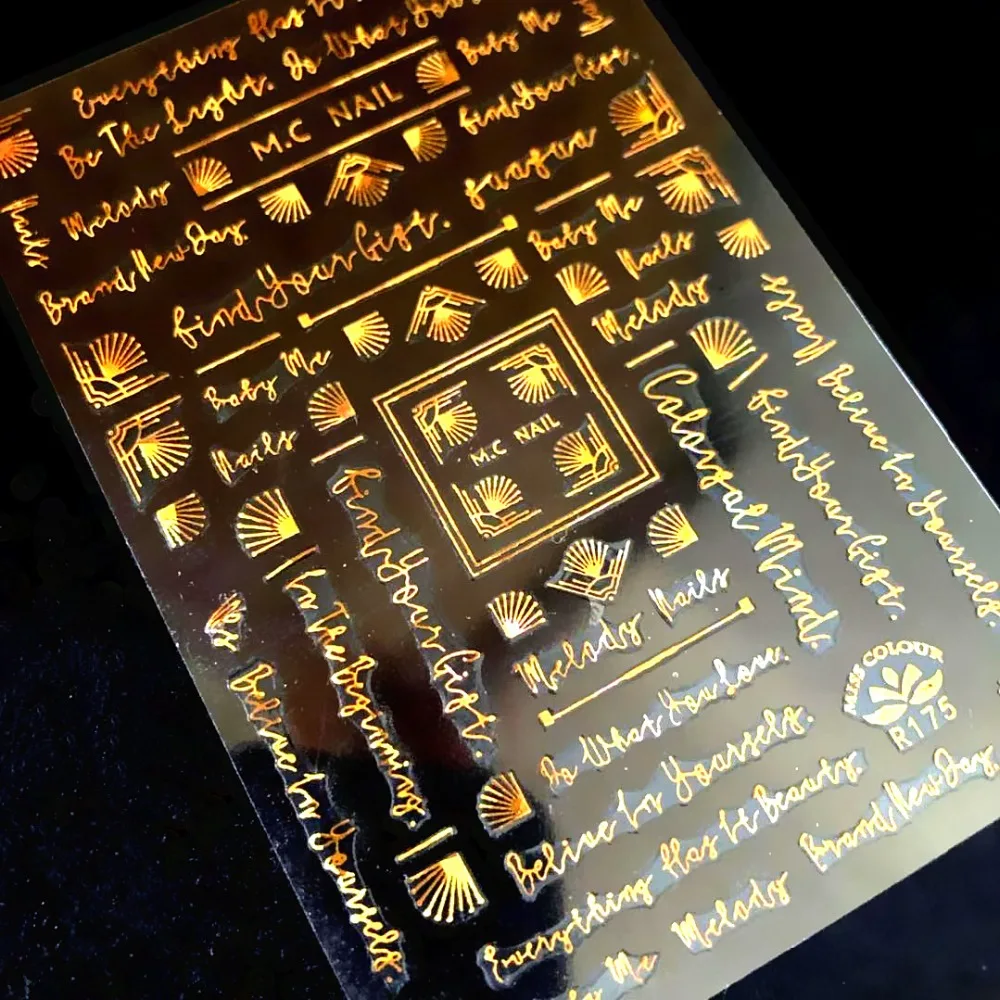 Everything Has It
Be The Light. Do What You
Baby Me
M.C NAIL
Find Your Gift.
Nails
Melody
Brand New Day.
Find Your Gift.
Baby Me
Nails
Melody
Baby Me
Nails
M.C NAIL
Calm yet Mind.
Find Your Gift.
Nails
Believe In Yourselfs.
Find Your Gift.
In The Beginning.
Believe In Yourselfs.
Melody Nails
Do What You Love.
Believe In Yourselfs.
Everything Has It Beauty.
Brand New Day.
Melody
Me
MISS COLOUR
R175